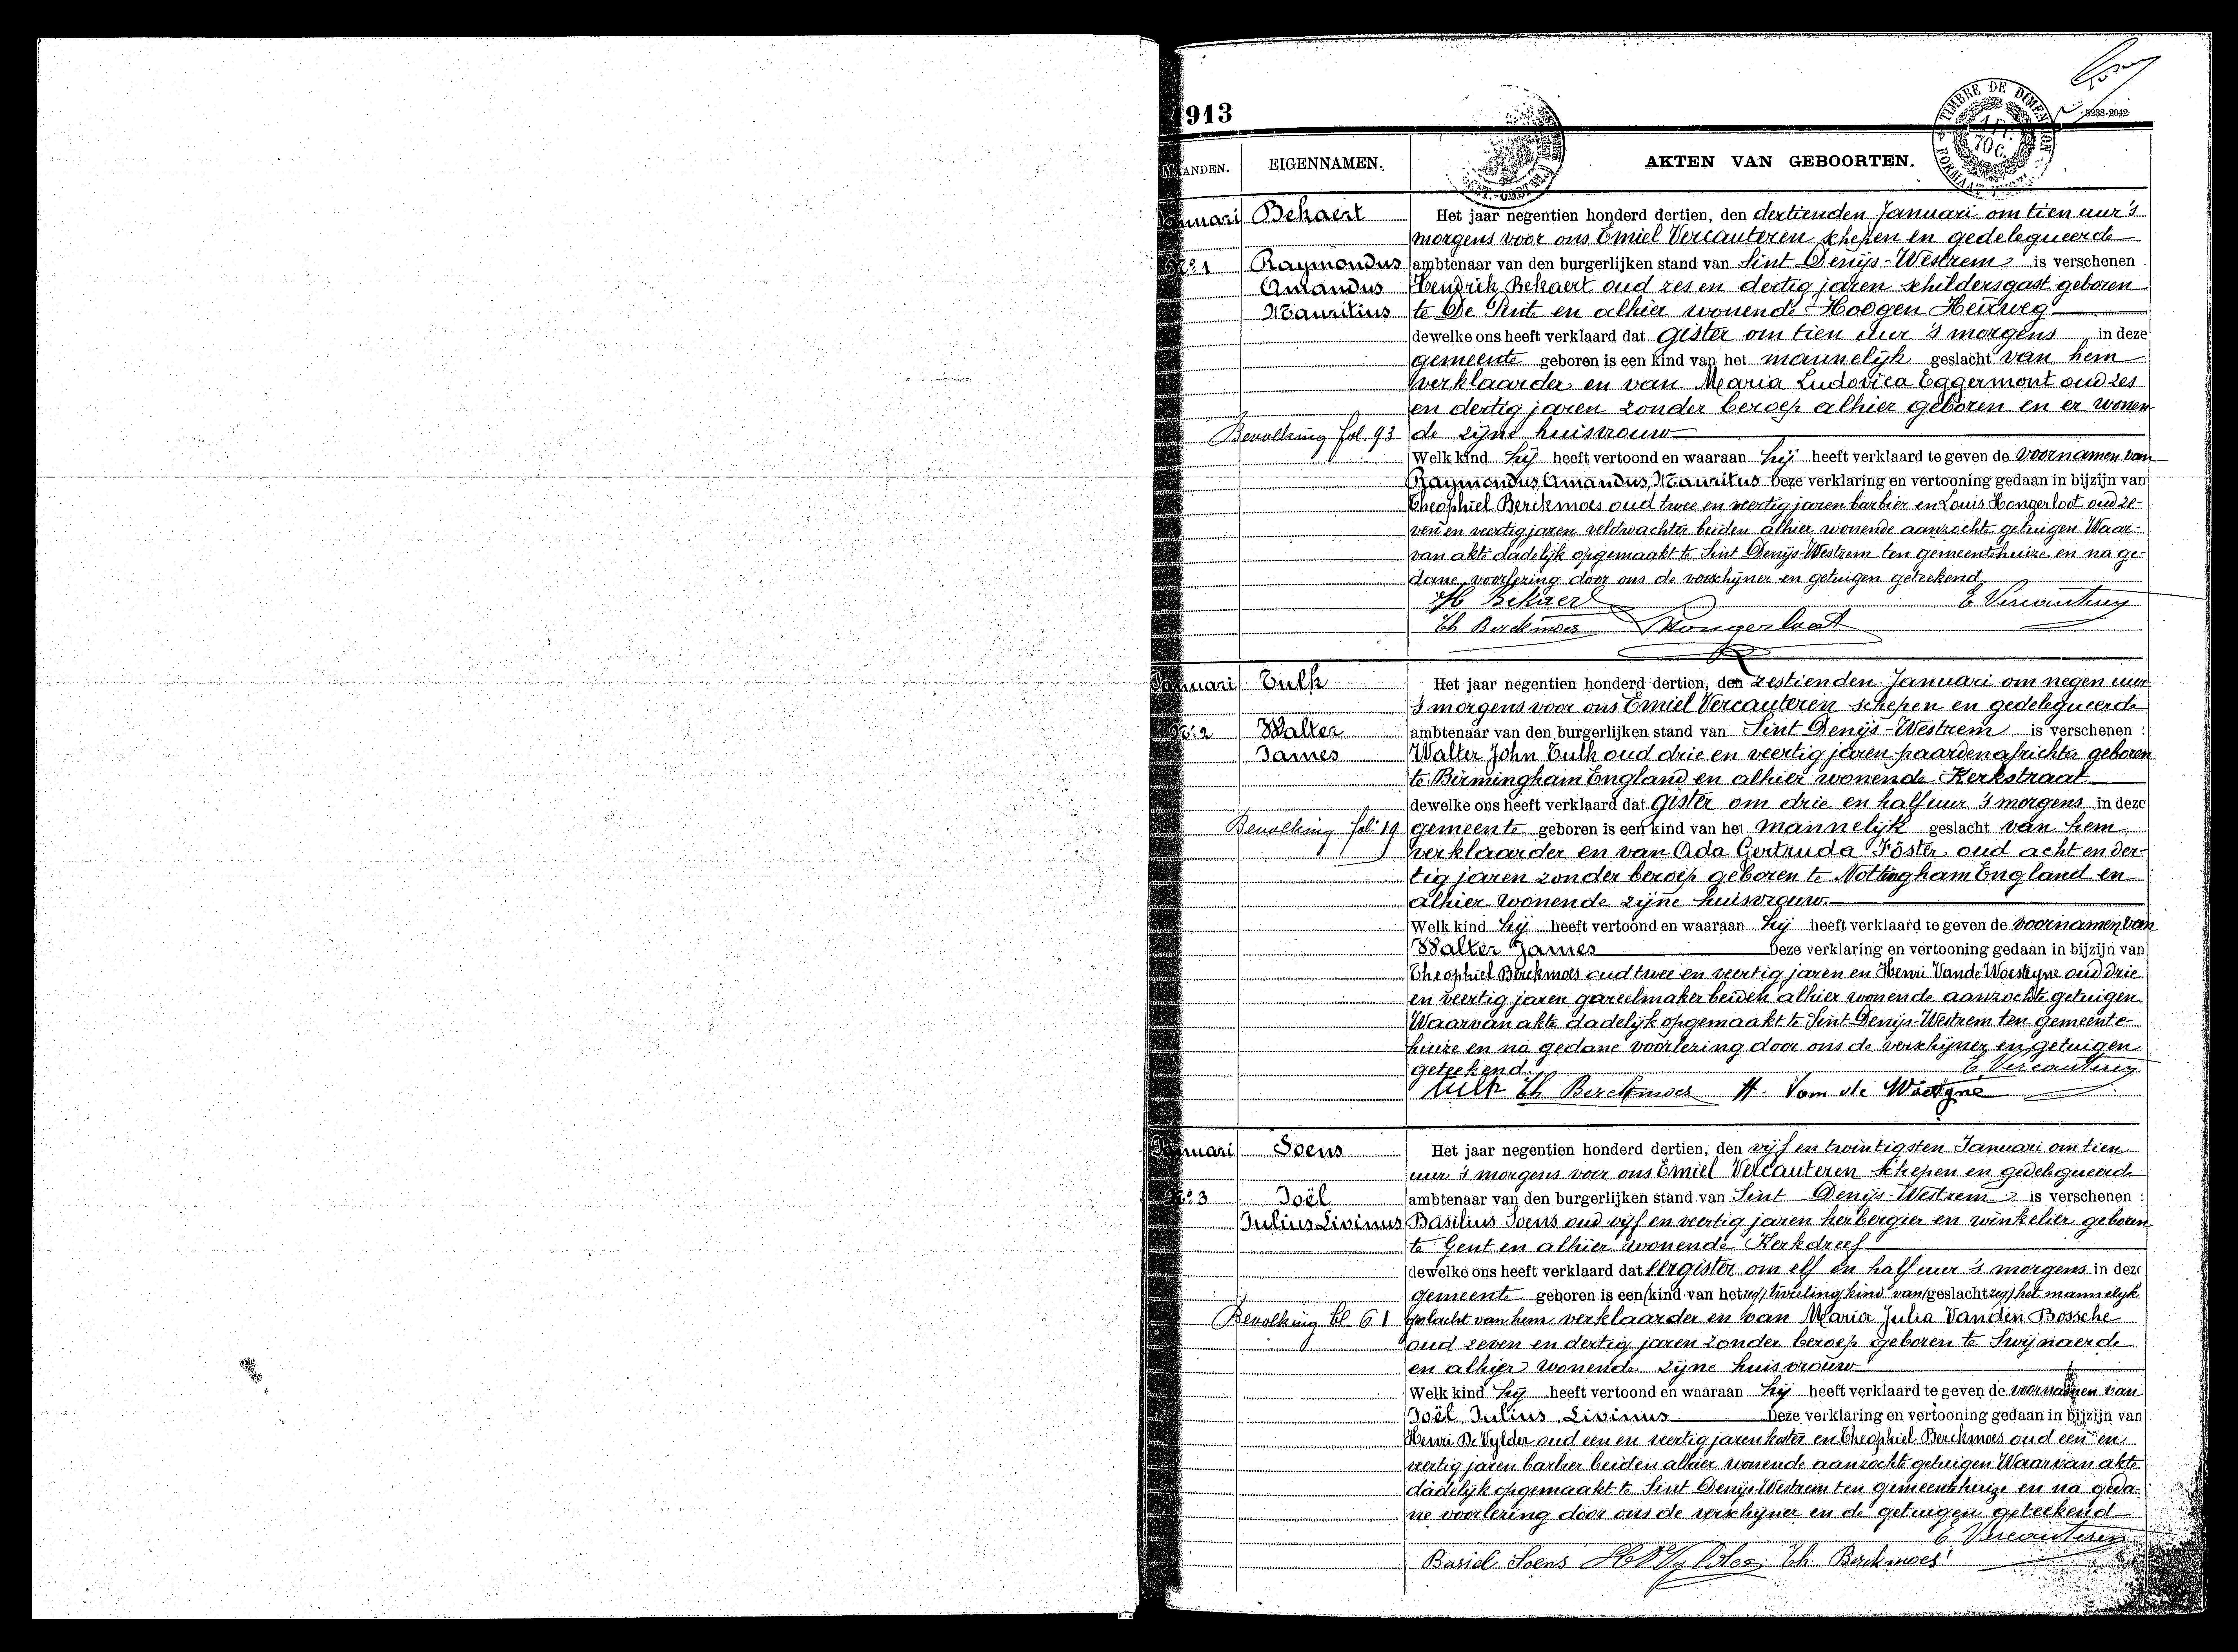 1913
5238-2042
TIMBRE DE DIMENSION
MAANDEN. EIGENNAMEN. AKTEN VAN GEBOORTEN.
Januari Bekaert Het jaar negentien honderd dertien, den dertienden Januari om tien uur 's
morgens voor ons Emiel Vercauteren schepen en gedelegueerde
No. 1 Raymondus ambtenaar van den burgerlijken stand van Sint Denijs-Westrem is verschenen :
Amandus Hendrik Bekaert oud zes en dertig jaren schildersgast geboren
Mauritius te De Pinte en alhier wonende Hoogen Heirweg
dewelke ons heeft verklaard dat gister om tien uur 's morgens in deze
gemeente geboren is een kind van het mannelijk geslacht van hem
verklaarder en van Maria Ludovica Eggermont oud zes
en dertig jaren zonder beroep alhier geboren en er wonen-
Bevolking fol. 93 de zijne huisvrouw
Welk kind hij heeft vertoond en waaraan hij heeft verklaard te geven de voornamen van
Raymondus, Amandus, Mauritus Deze verklaring en vertooning gedaan in bijzijn van
Theophiel Berckmoes oud twee en veertig jaren barbier en Louis Hongerloot oud ze-
ven en veertig jaren veldwachter beiden alhier wonende aanzochte getuigen Waar-
van akte dadelijk opgemaakt te Sint Denijs-Westrem ten gemeentehuize en na ge-
dane voorlezing door ons de verschijner en getuigen geteekend
H. Bekaert E. Vercauteren
Th Berckmoes Hongerloot
Januari Tulk Het jaar negentien honderd dertien, den zestienden Januari om negen uur
's morgens voor ons Emiel Vercauteren schepen en gedelegueerde
No. 2 Walter ambtenaar van den burgerlijken stand van Sint Denijs-Westrem is verschenen :
James Walter John Tulk oud drie en veertig jaren paardenafrichter geboren
te Birmingham England en alhier wonende Kerkstraat
dewelke ons heeft verklaard dat gister om drie en half uur 's morgens in deze
Bevolking fol. 19 gemeente geboren is een kind van het mannelijk geslacht van hem
verklaarder en van Ada Gertruda Föster oud acht en der-
tig jaren zonder beroep geboren te Nottingham England en
alhier wonende zijne huisvrouw.
Welk kind hij heeft vertoond en waaraan hij heeft verklaard te geven de voornamen van
Walter James Deze verklaring en vertooning gedaan in bijzijn van
Theophiel Berckmoes oud twee en veertig jaren en Henri Van de Woestyne oud drie
en veertig jaren gareelmaker beiden alhier wonende aanzochte getuigen
Waarvan akte dadelijk opgemaakt te Sint Denijs-Westrem ten gemeente-
huize en na gedane voorlezing door ons de verschijner en getuigen
geteekend. E. Vercauteren
Tulk Th Berckmoes H. Van de Woestyne
Januari Soens Het jaar negentien honderd dertien, den vijf en twintigsten Januari om tien
uur 's morgens voor ons Emiel Vercauteren schepen en gedelegueerde
No. 3 Joël ambtenaar van den burgerlijken stand van Sint Denijs-Westrem is verschenen :
Julius Livinus Basilius Soens oud vijf en veertig jaren herbergier en winkelier geboren
te Gent en alhier wonende Kerkdreef
dewelke ons heeft verklaard dat eergister om elf en half uur 's morgens in deze
gemeente geboren is een kind van het zeg tweelingkind van geslacht zeg het mannelijk
Bevolking bl 61 geslacht van hem verklaarder en van Maria Julia Vanden Bossche
oud zeven en dertig jaren zonder beroep geboren te Swijnaerde
en alhier wonende zijne huisvrouw
Welk kind hij heeft vertoond en waaraan hij heeft verklaard te geven de voornamen van
Joël, Julius, Livinus Deze verklaring en vertooning gedaan in bijzijn van
Henri De Vylder oud een en veertig jaren koster en Theophiel Berckmoes oud een en
veertig jaren barbier beiden alhier wonende aanzochte getuigen Waarvan akte
dadelijk opgemaakt te Sint Denijs-Westrem ten gemeentehuize en na geda-
ne voorlezing door ons de verschijner en de getuigen geteekend
E. Vercauteren
Basiel Soens H De Vylder Th Berckmoes